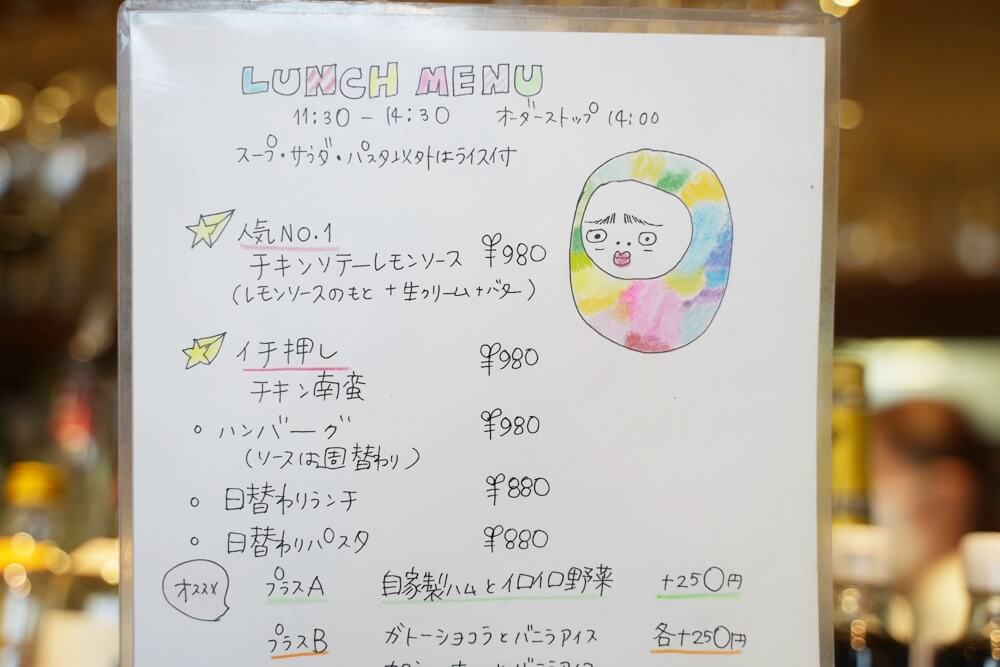 LUNCH MENU
11:30 - 14:30 オーダーストップ 14:00
スープ・サラダ・パスタ以外はライス付
人気NO.1
チキンソテーレモンソース ¥980
(レモンソースのもと + 生クリーム + バター)
イチ押し ¥980
チキン南蛮
ハンバーグ ¥980
(ソースは週替わり)
日替わりランチ ¥880
日替わりパスタ ¥880
オススメ プラスA 自家製ハムとイロイロ野菜 +250円
プラスB ガトーショコラとバニラアイス 各+250円